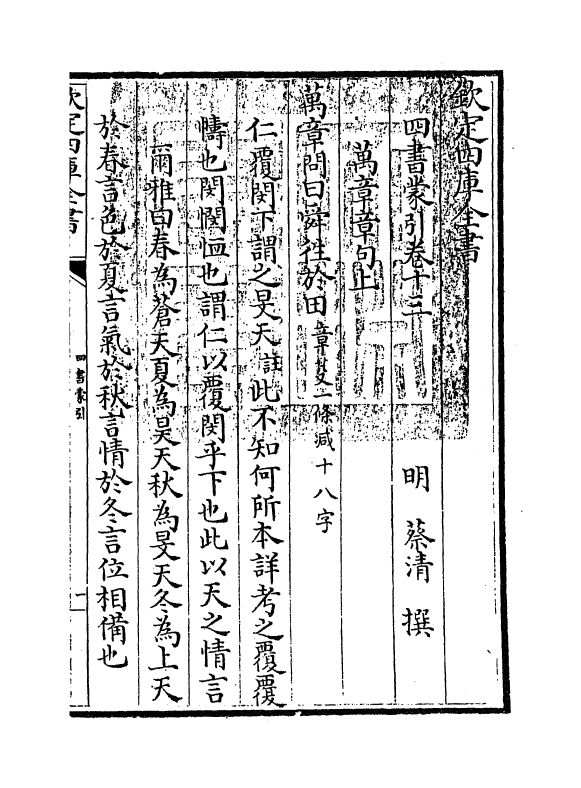 欽定四庫全書
四書蒙引卷十三
明 蔡清 撰
萬章章句上
萬章問曰舜往於田章條減十八字
仁覆閔下謂之旻天註此不知何所本詳考之覆覆
幬也閔憫恤也謂仁以覆閔乎下也此以天之情言
爾雅曰春為蒼天夏為昊天秋為旻天冬為上天
於春言色於夏言氣於秋言情於冬言位相備也
欽定四庫全書
四書蒙引
一